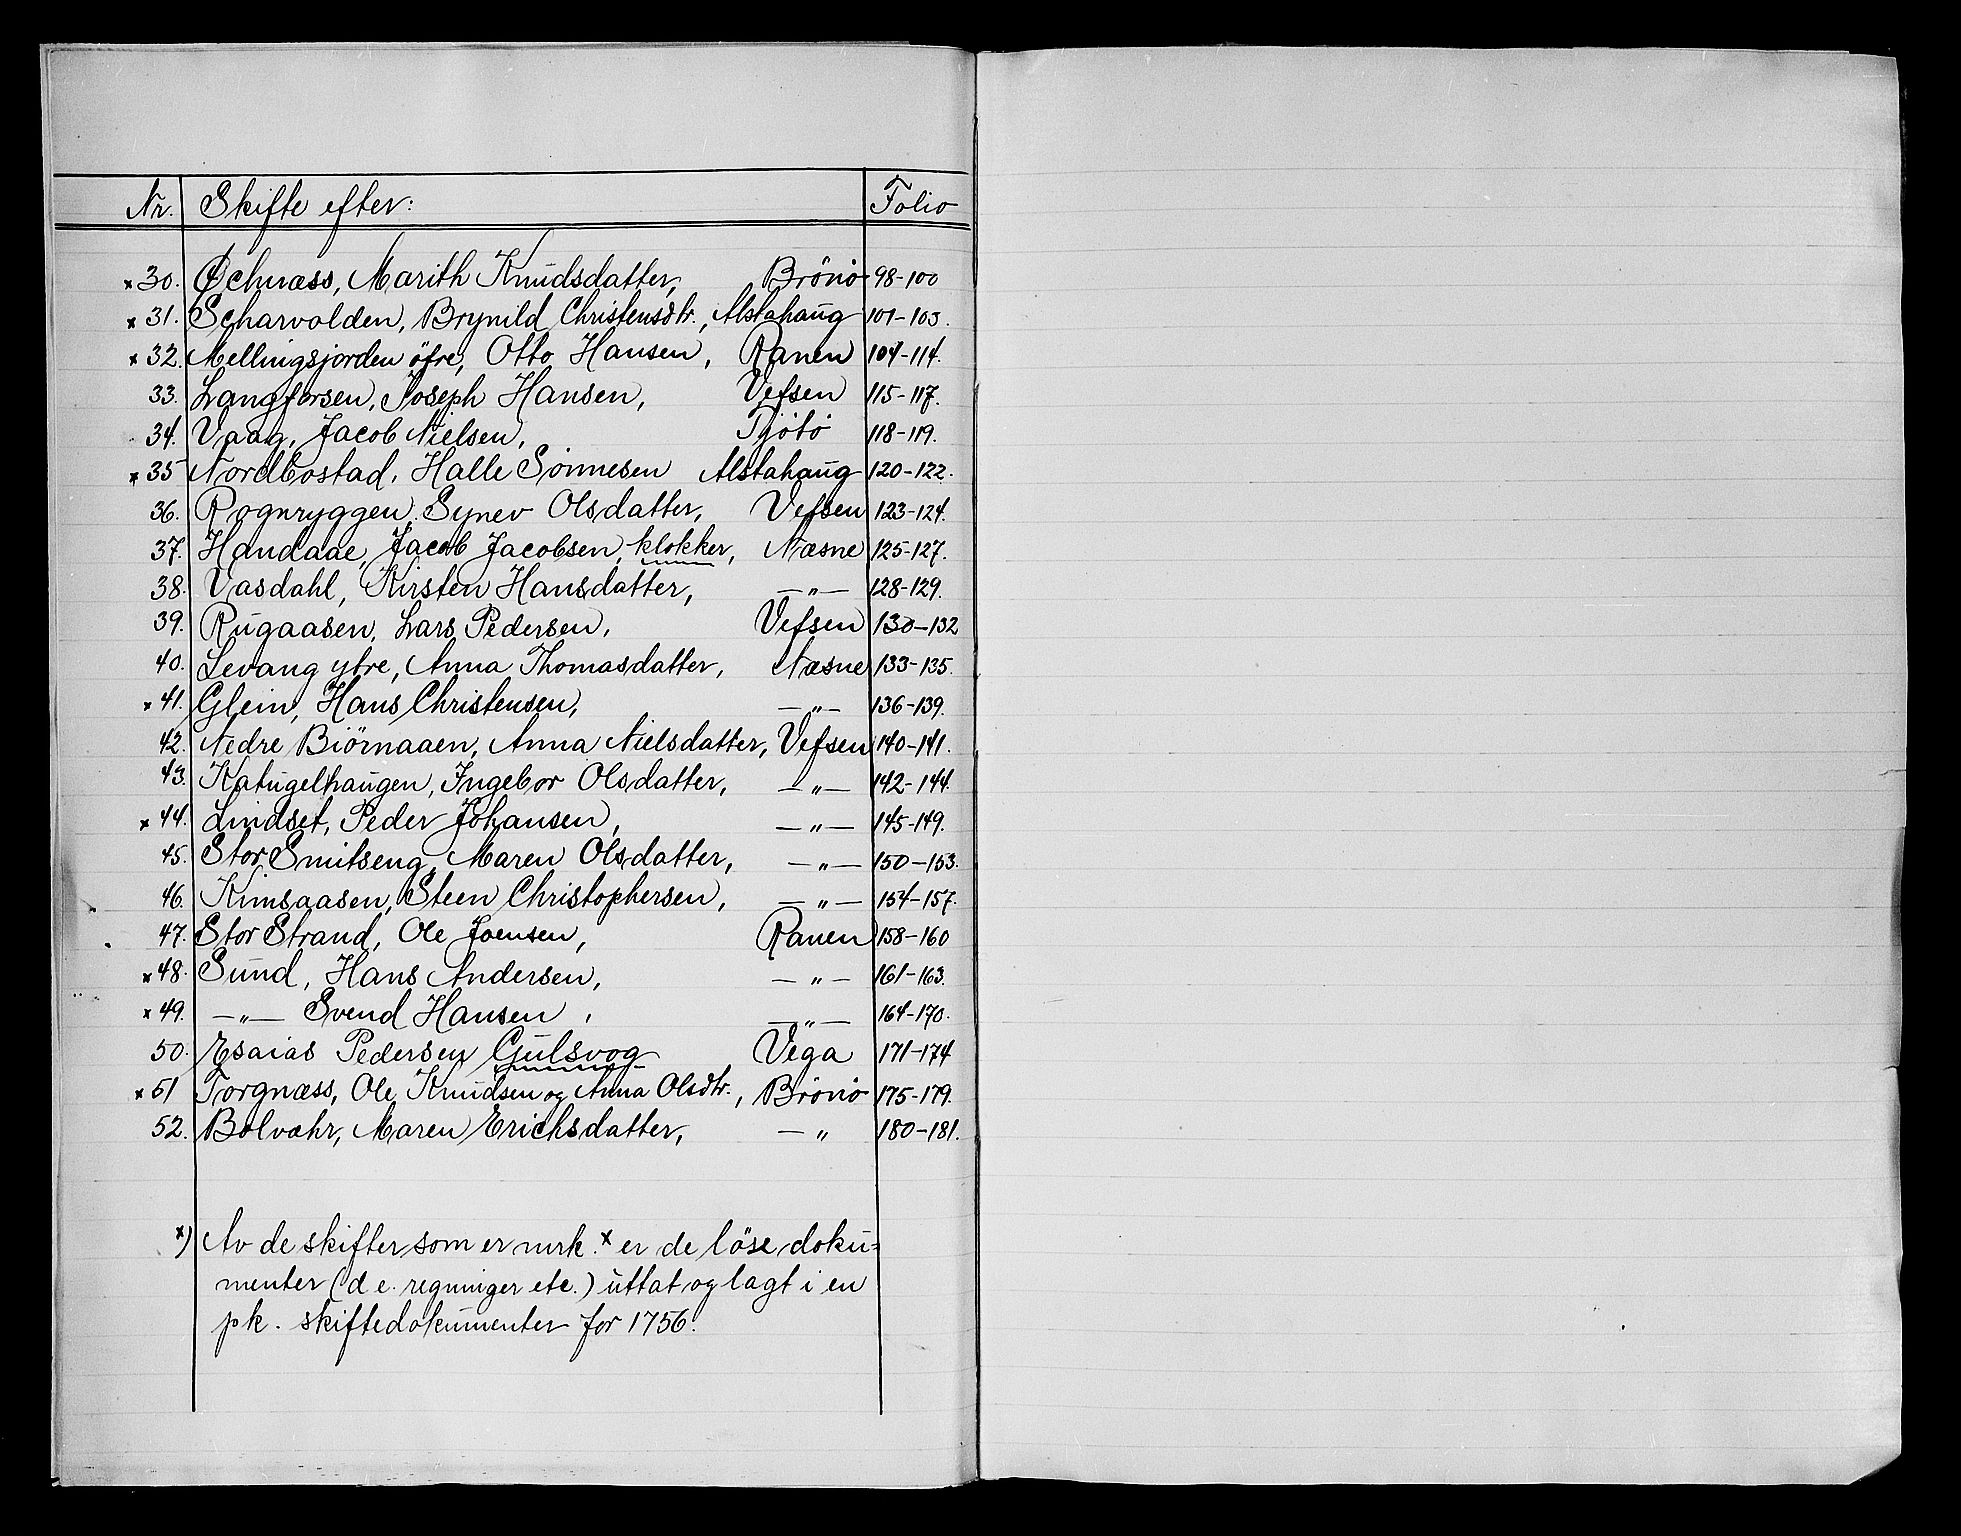 Nr. Skifte efter: Folio
x 30. Øchnæss, Marith Knudsdatter, Brönö 98-100
x 31. Scharvolden, Brynild Christensdtr., Alstahaug 101-103.
x 32. Mellingsjorden öfre, Otto Hansen, Ranen 104-114.
33. Langforsen, Joseph Hansen, Vefsen 115-117.
34. Vaag, Jacob Nielsen, Tjötö 118-119.
x 35 Nordbostad, Halle Sönnesen Alstahaug 120-122.
36. Rognryggen, Synev Olsdatter, Vefsen 123-124.
37. Handaae, Jacob Jacobsen, klokker, Næsne 125-127.
38. Vasdahl, Kirsten Hansdatter, —"— 128-129.
39. Rugaasen, Lars Pedersen, Vefsen 130-132
40. Levang ytre, Anna Thomasdatter, Næsne 133-135.
x 41. Glein, Hans Christensen, —"— 136-139.
42. Nedre Biörnaaen, Anna Nielsdatter, Vefsen 140-141.
43. Katugelhaugen, Ingebor Olsdatter, —"— 142-144.
x 44. Lindset, Peder Johansen, —"— 145-149.
45. Stor Smitseng, Maren Olsdatter, —"— 150-153.
46. Kimsaasen, Steen Christophersen, —"— 154-157.
47. Stor Strand, Ole Joensen, Ranen 158-160
x 48. Sund, Hans Andersen, —"— 161-163.
x 49. —"— Svend Hansen, —"— 164-170.
50. Esaias Pedersen Gulsvog Vega 171-174
x 51 Torgnæss, Ole Knudsen og Anna Olsdtr., Brönö 175-179.
52. Bolvæhr, Maren Erichsdatter, —" 180-181.
x) Av de skifter som er mrk. x er de löse doku=
menter (d. e. regninger etc.) uttat og lagt i en
pk. skiftedokumenter for 1756.